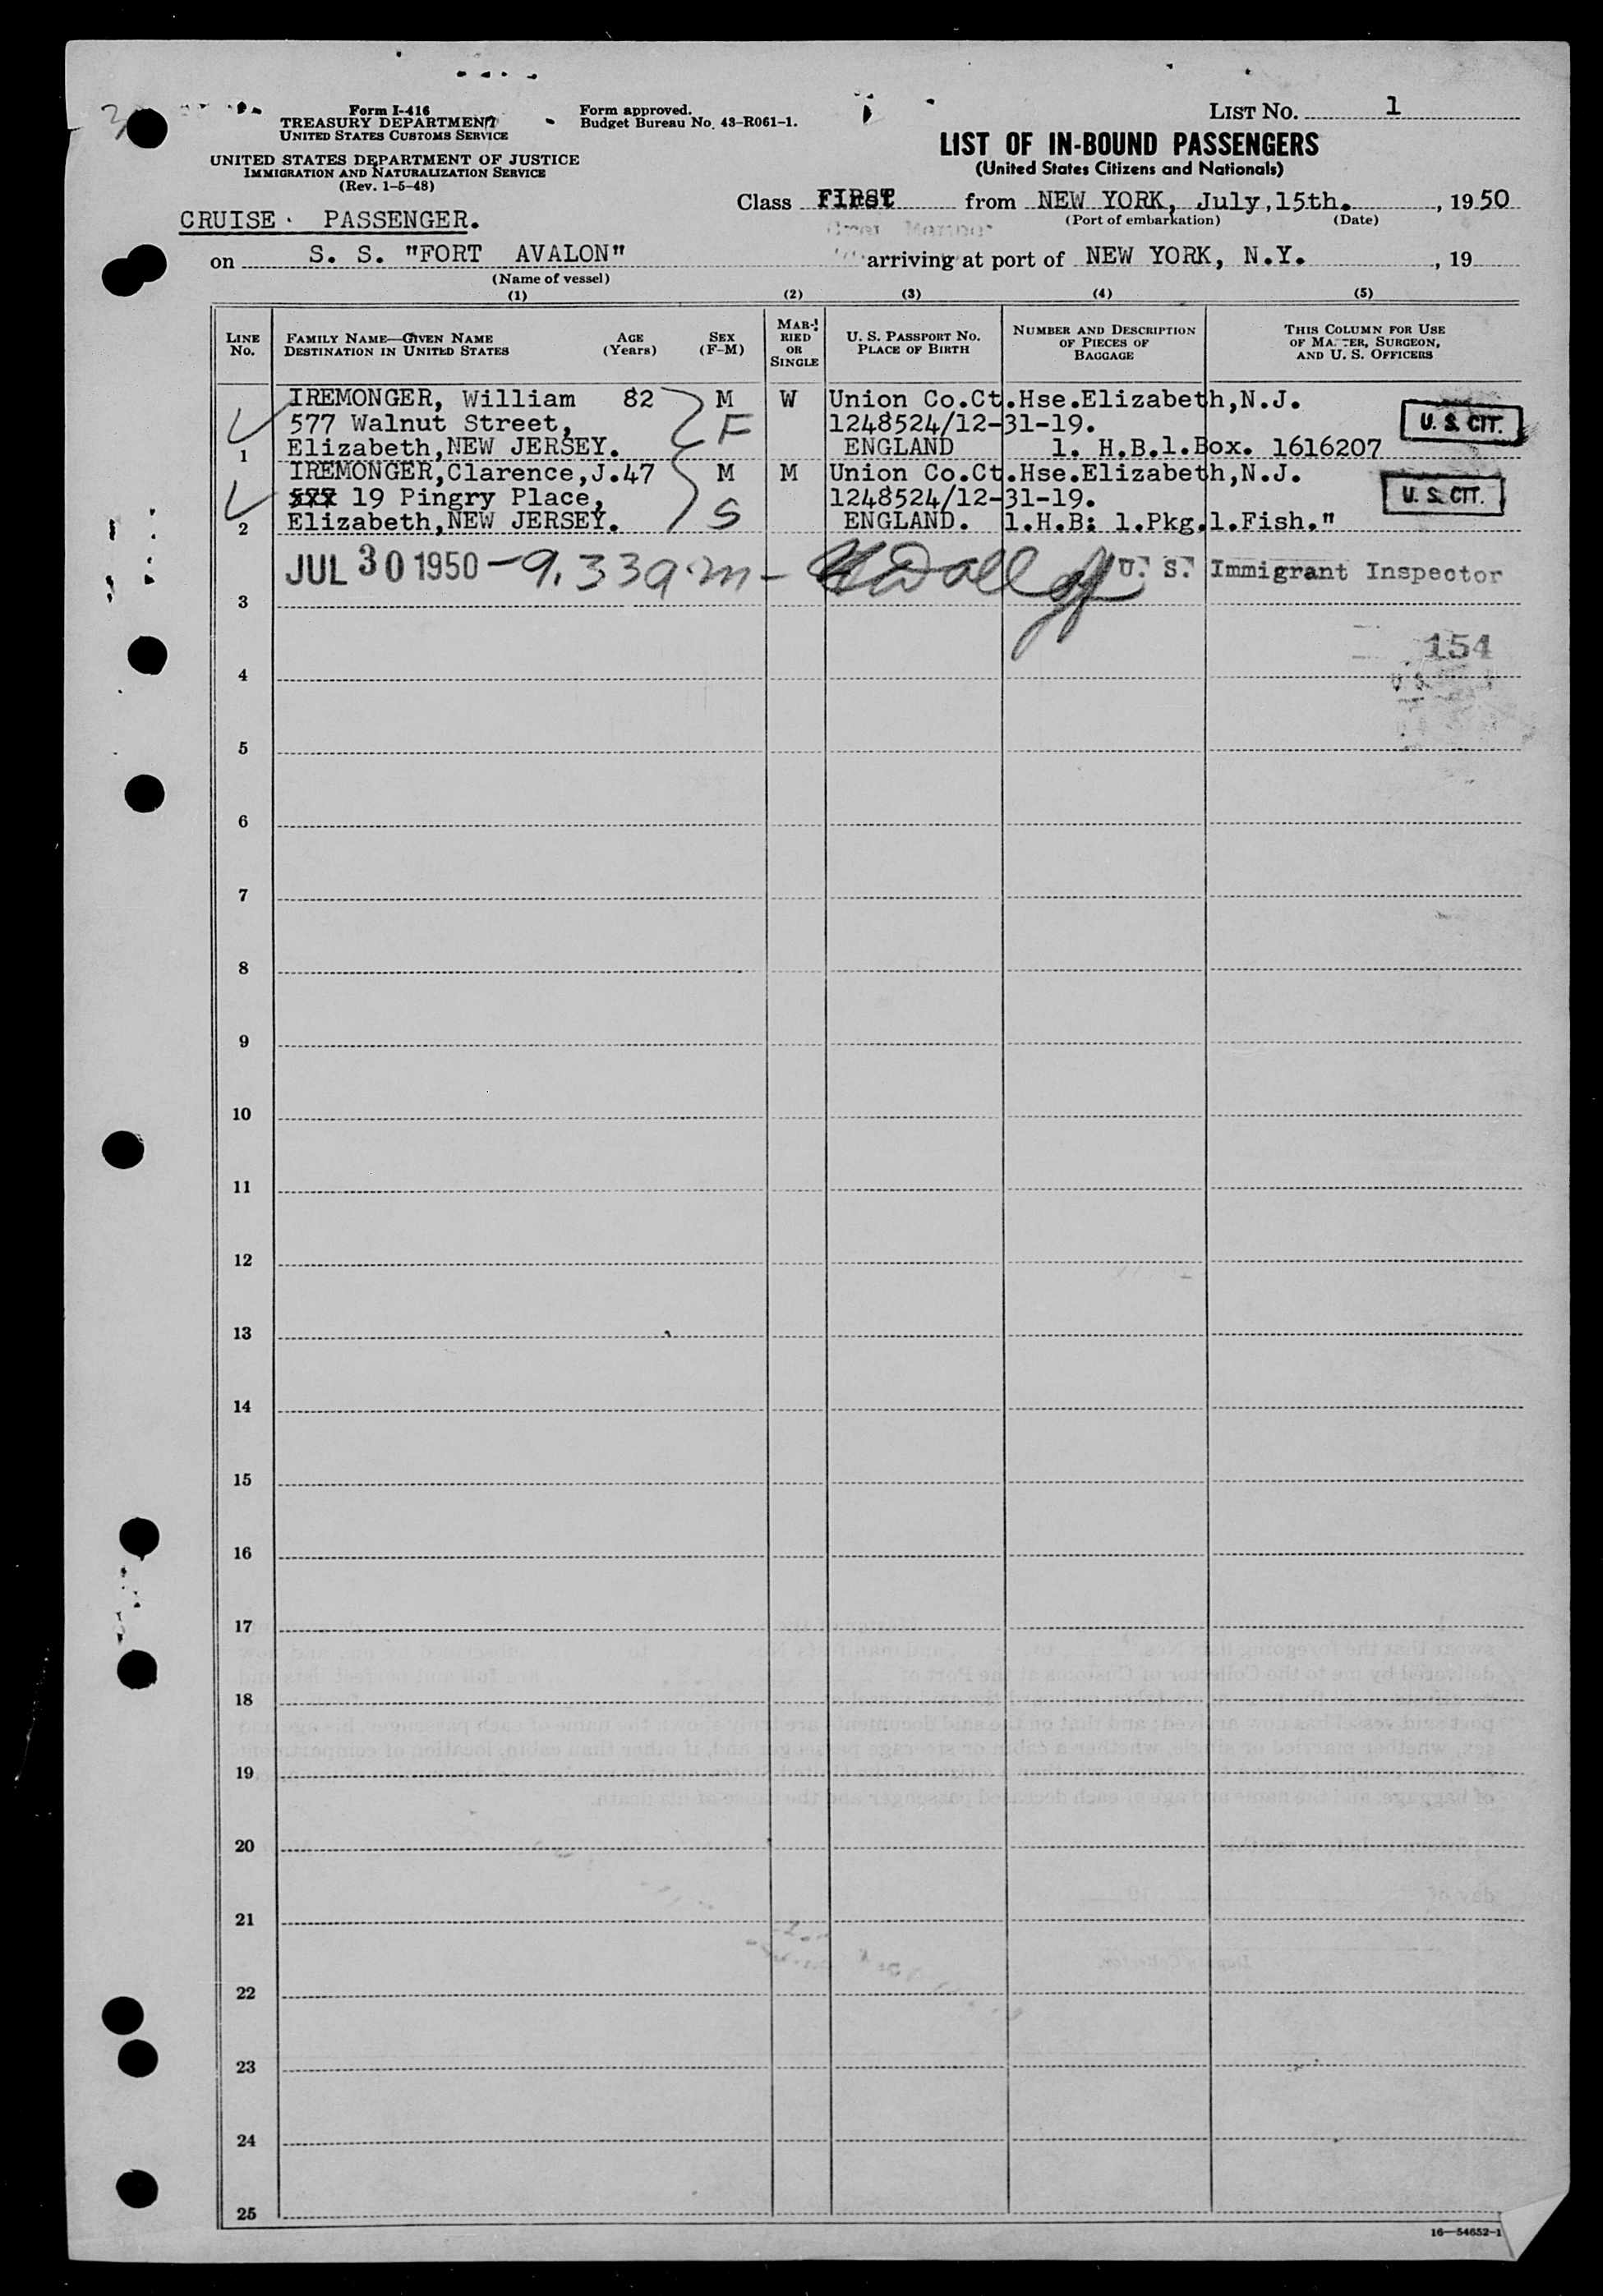 3
Form I-416
TREASURY DEPARTMENT
UNITED STATES CUSTOMS SERVICE
UNITED STATES DEPARTMENT OF JUSTICE
IMMIGRATION AND NATURALIZATION SERVICE
(Rev. 1-5-48)
Form approved.
Budget Bureau No. 43-R061-1.
LIST No. 1
LIST OF IN-BOUND PASSENGERS
(United States Citizens and Nationals)
Class FIRST from NEW YORK, July,15th. , 1950
(Port of embarkation) (Date)
CRUISE PASSENGER.
on S. S. "FORT AVALON" arriving at port of NEW YORK, N.Y. , 19
(Name of vessel)
(1) (2) (3) (4) (5)
LINE No. FAMILY NAME—GIVEN NAME DESTINATION IN UNITED STATES AGE (Years) SEX (F-M) MARRIED OR SINGLE U. S. PASSPORT No. PLACE OF BIRTH NUMBER AND DESCRIPTION OF PIECES OF BAGGAGE THIS COLUMN FOR USE OF MASTER, SURGEON, AND U. S. OFFICERS
IREMONGER, William 82 M W Union Co.Ct.Hse.Elizabeth,N.J.
577 Walnut Street, F 1248524/12-31-19. U. S. CIT.
1 Elizabeth,NEW JERSEY. ENGLAND 1. H.B.1.Box. 1616207
IREMONGER,Clarence,J.47 M M Union Co.Ct.Hse.Elizabeth,N.J.
19 Pingry Place, S 1248524/12-31-19. U. S. CIT.
2 Elizabeth,NEW JERSEY. ENGLAND. 1.H.B: 1.Pkg.1.Fish."
JUL 30 1950 - 9.33 a.m - U. S. Immigrant Inspector
3
154
4
5
6
7
8
9
10
11
12
13
14
15
16
17
18
19
20
21
22
23
24
25
16—54652-1